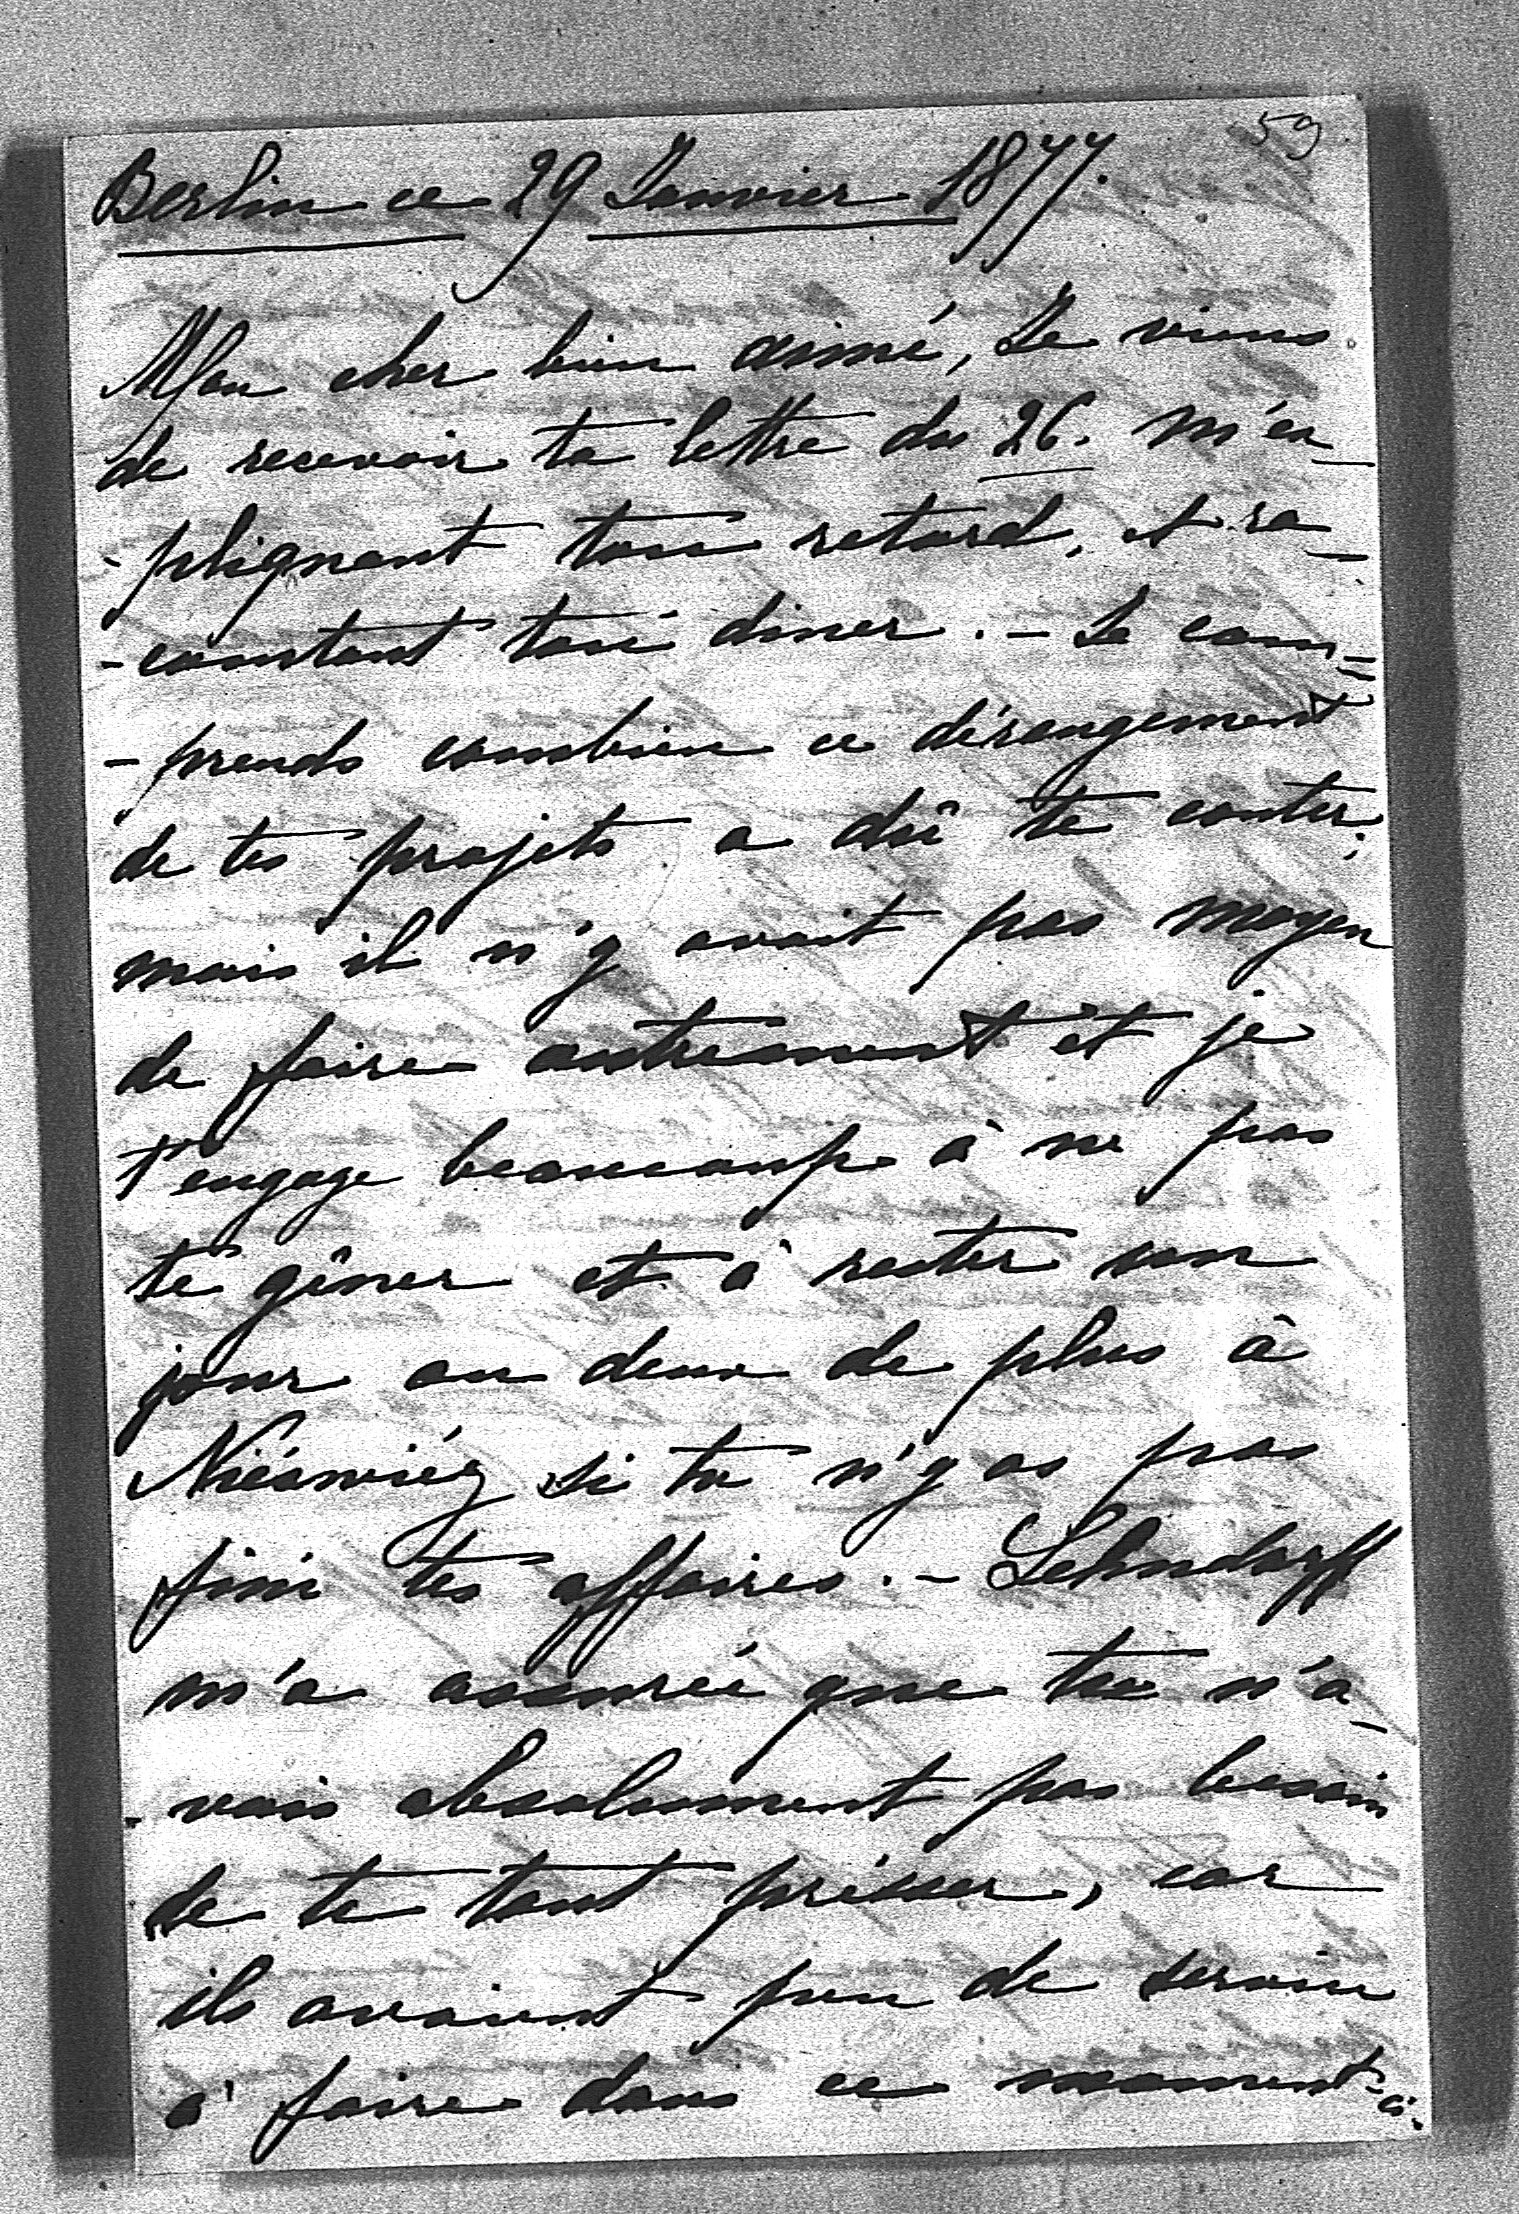 59
Berlin ce 29 Janvier 1877.
Mon cher bien aimé, Je viens
de recevoir ta lettre du 26. m'ex-
-pliquant ton retard, et ra-
-contant ton diner. - Je com=
-prends combien ce dérangement
de tes projets a dû te couter;
mais il n'y avait pas moyen
de faire autrement et je
t'engage beaucoup à ne pas
te gêner et à rester un
jour ou deux de plus à
Niéswiéz si tu n'y as pas
fini tes affaires. - Lehndorff
m'a assurée que tu n'a-
-vais absolument pas besoin
de te tant presser, car
ils avaient peu de service
à faire dans ce moment-ci.